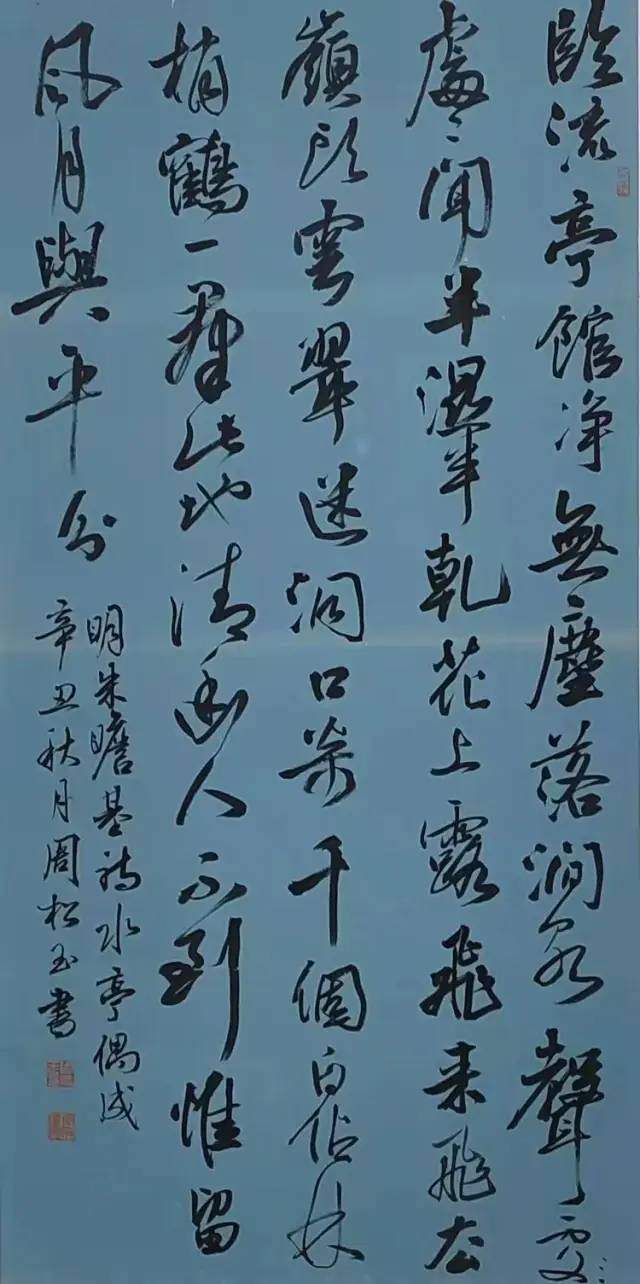 臨流亭館净無塵落澗泉聲
處〻聞半濕半乾花上露飛来飛去
嶺頭雲翠迷洞口千個白佔林
梢鶴一群此地清幽人不到惟留
風月與平分
明朱瞻基詩水亭偶成
辛丑秋月周松玉書